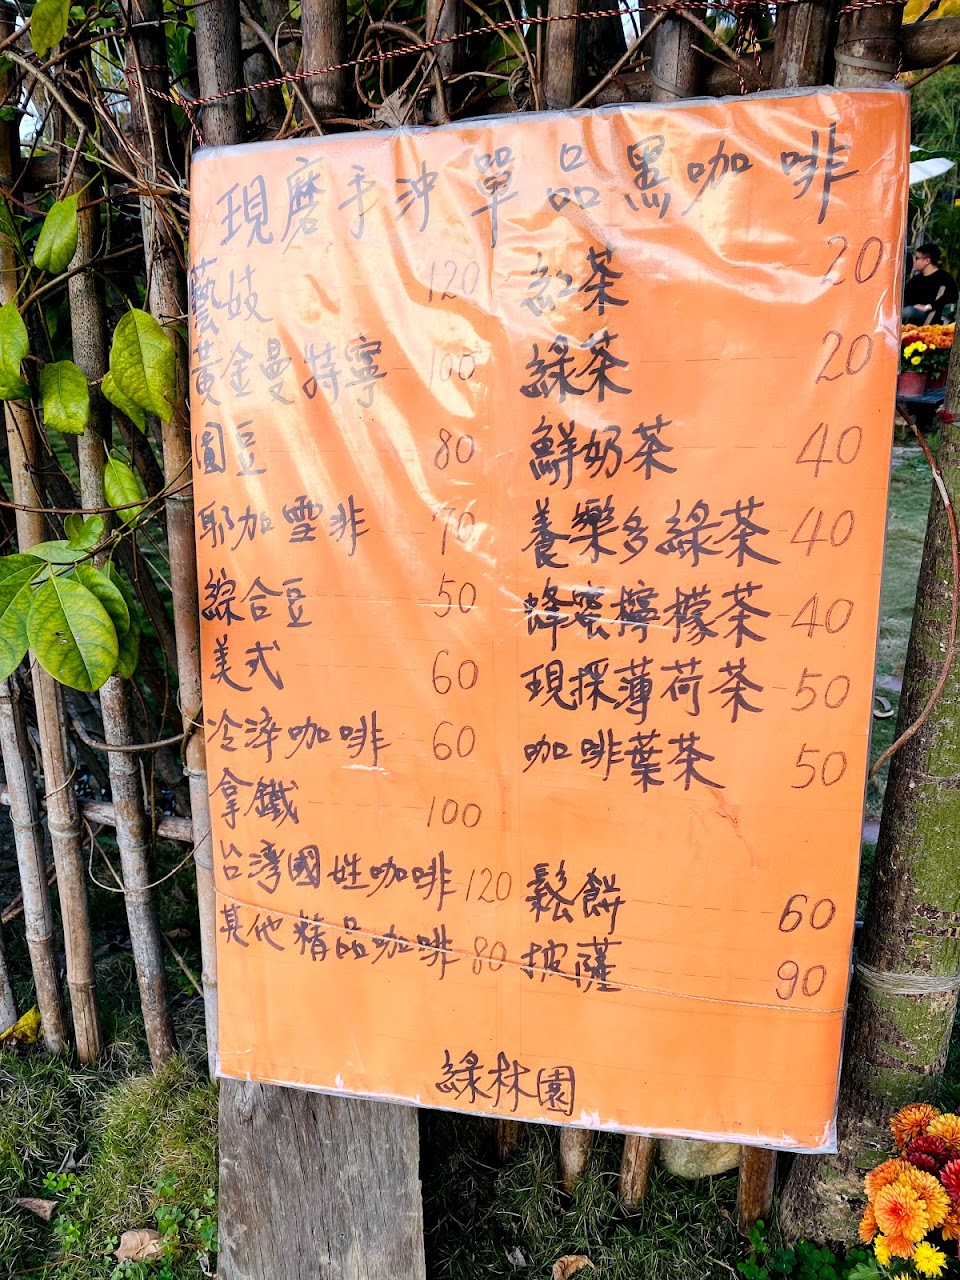 現磨手沖單品黑咖啡
藝妓 120
黃金曼特寧 100
圓豆 80
耶加雪非 70
綜合豆 50
美式 60
冷淬咖啡 60
拿鐵 100
台灣國姓咖啡 120
其他精品咖啡 80
紅茶 20
綠茶 20
鮮奶茶 40
養樂多綠茶 40
蜂蜜檸檬茶 40
現採薄荷茶 50
咖啡葉茶 50
鬆餅 60
披薩 90
綠林園